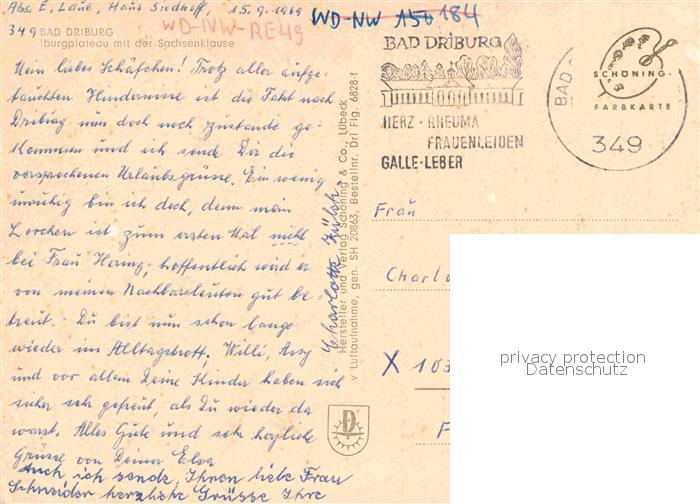 Abs. E. Laue, Haus Siedhoff, 15.9.1969
WD-NW-RE49
WD-NW 150 184
349 BAD DRIBURG
Iburgplateau mit der Sachsenklause
Mein liebes Schäfchen! Trotz aller aufge-
tauchten Hindernisse ist die Fahrt nach
Driburg nun doch noch zustande ge-
kommen und ich sende Dir die
versprochenen Urlaubsgrüsse. Ein wenig
unruhig bin ich doch, denn mein
Lorchen ist zum ersten Mal nicht
bei Frau Hering, hoffentlich wird er
von meinen Nachbarsleuten gut be-
treut. Du bist nun schon lange
wieder im Alltagstrott, Willi,
und vor allem Deine Kinder haben sich
sicher sehr gefreut, als Du wieder da
warst. Alles Gute und sehr herzliche
Grüsse von Deiner Elsa
Auch ich sende, Ihnen liebe Frau
Schneider herzliche Grüsse Ihre
Charlotte
Hersteller und Verlag Schöning & Co., Lübeck
Luftaufnahme, gen. SH 20863, Bestellnr. Dri Flg. 6828-1
BAD DRIBURG
HERZ · RHEUMA
FRAUENLEIDEN
GALLE · LEBER
BAD
349
SCHÖNING
FARBKARTE
Frau
Charlo
X 103
F
D
privacy protection
Datenschutz